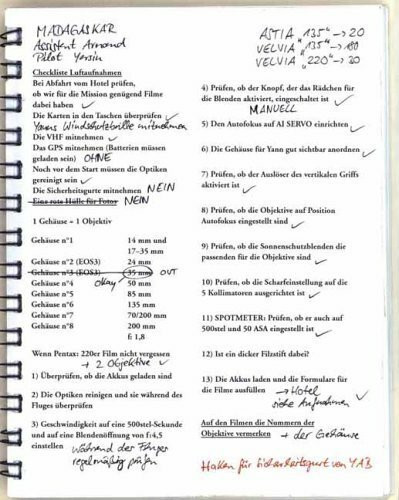 MADAGASKAR
Assistent Armand
Pilot Yersin
Checkliste Luftaufnahmen
Bei Abfahrt vom Hotel prüfen,
ob wir für die Mission genügend Filme
dabei haben
Die Karten in den Taschen überprüfen
Yanns Windschutzbrille mitnehmen
Die VHF mitnehmen
Das GPS mitnehmen (Batterien müssen
geladen sein) OHNE
Noch vor dem Start müssen die Optiken
gereinigt sein
Die Sicherheitsgurte mitnehmen NEIN
Eine rote Hülle für Fotos NEIN
1 Gehäuse = 1 Objektiv
Gehäuse n°1 14 mm und
17–35 mm
Gehäuse n°2 (EOS3) 24 mm
Gehäuse n°3 (EOS3) 35 mm OUT
Gehäuse n°4 okay 50 mm
Gehäuse n°5 85 mm
Gehäuse n°6 135 mm
Gehäuse n°7 70/200 mm
Gehäuse n°8 200 mm
f: 1,8
Wenn Pentax: 220er Film nicht vergessen
+ 2 Objektive
1) Überprüfen, ob die Akkus geladen sind
2) Die Optiken reinigen und sie während des
Fluges überprüfen
3) Geschwindigkeit auf eine 500stel-Sekunde
und auf eine Blendenöffnung von f:4,5
einstellen während der Flüge
regelmäßig prüfen
ASTIA "135" → 20
VELVIA "135" → 180
VELVIA "220" → 20
4) Prüfen, ob der Knopf, der das Rädchen für
die Blenden aktiviert, eingeschaltet ist
MANUELL
5) Den Autofokus auf AI SERVO einrichten
6) Die Gehäuse für Yann gut sichtbar anordnen
7) Prüfen, ob der Auslöser des vertikalen Griffs
aktiviert ist
8) Prüfen, ob die Objektive auf Position
Autofokus eingestellt sind
9) Prüfen, ob die Sonnenschutzblenden die
passenden für die Objektive sind
10) Prüfen, ob die Scharfeinstellung auf die
5 Kollimatoren ausgerichtet ist
11) SPOTMETER: Prüfen, ob er auch auf
500stel und 50 ASA eingestellt ist
12) Ist ein dicker Filzstift dabei?
13) Die Akkus laden und die Formulare für
die Filme ausfüllen → Hotel
siehe Aufnahmen
Auf den Filmen die Nummern der
Objektive vermerken + der Gehäuse
Haken für Sicherheitsgurt von YAB